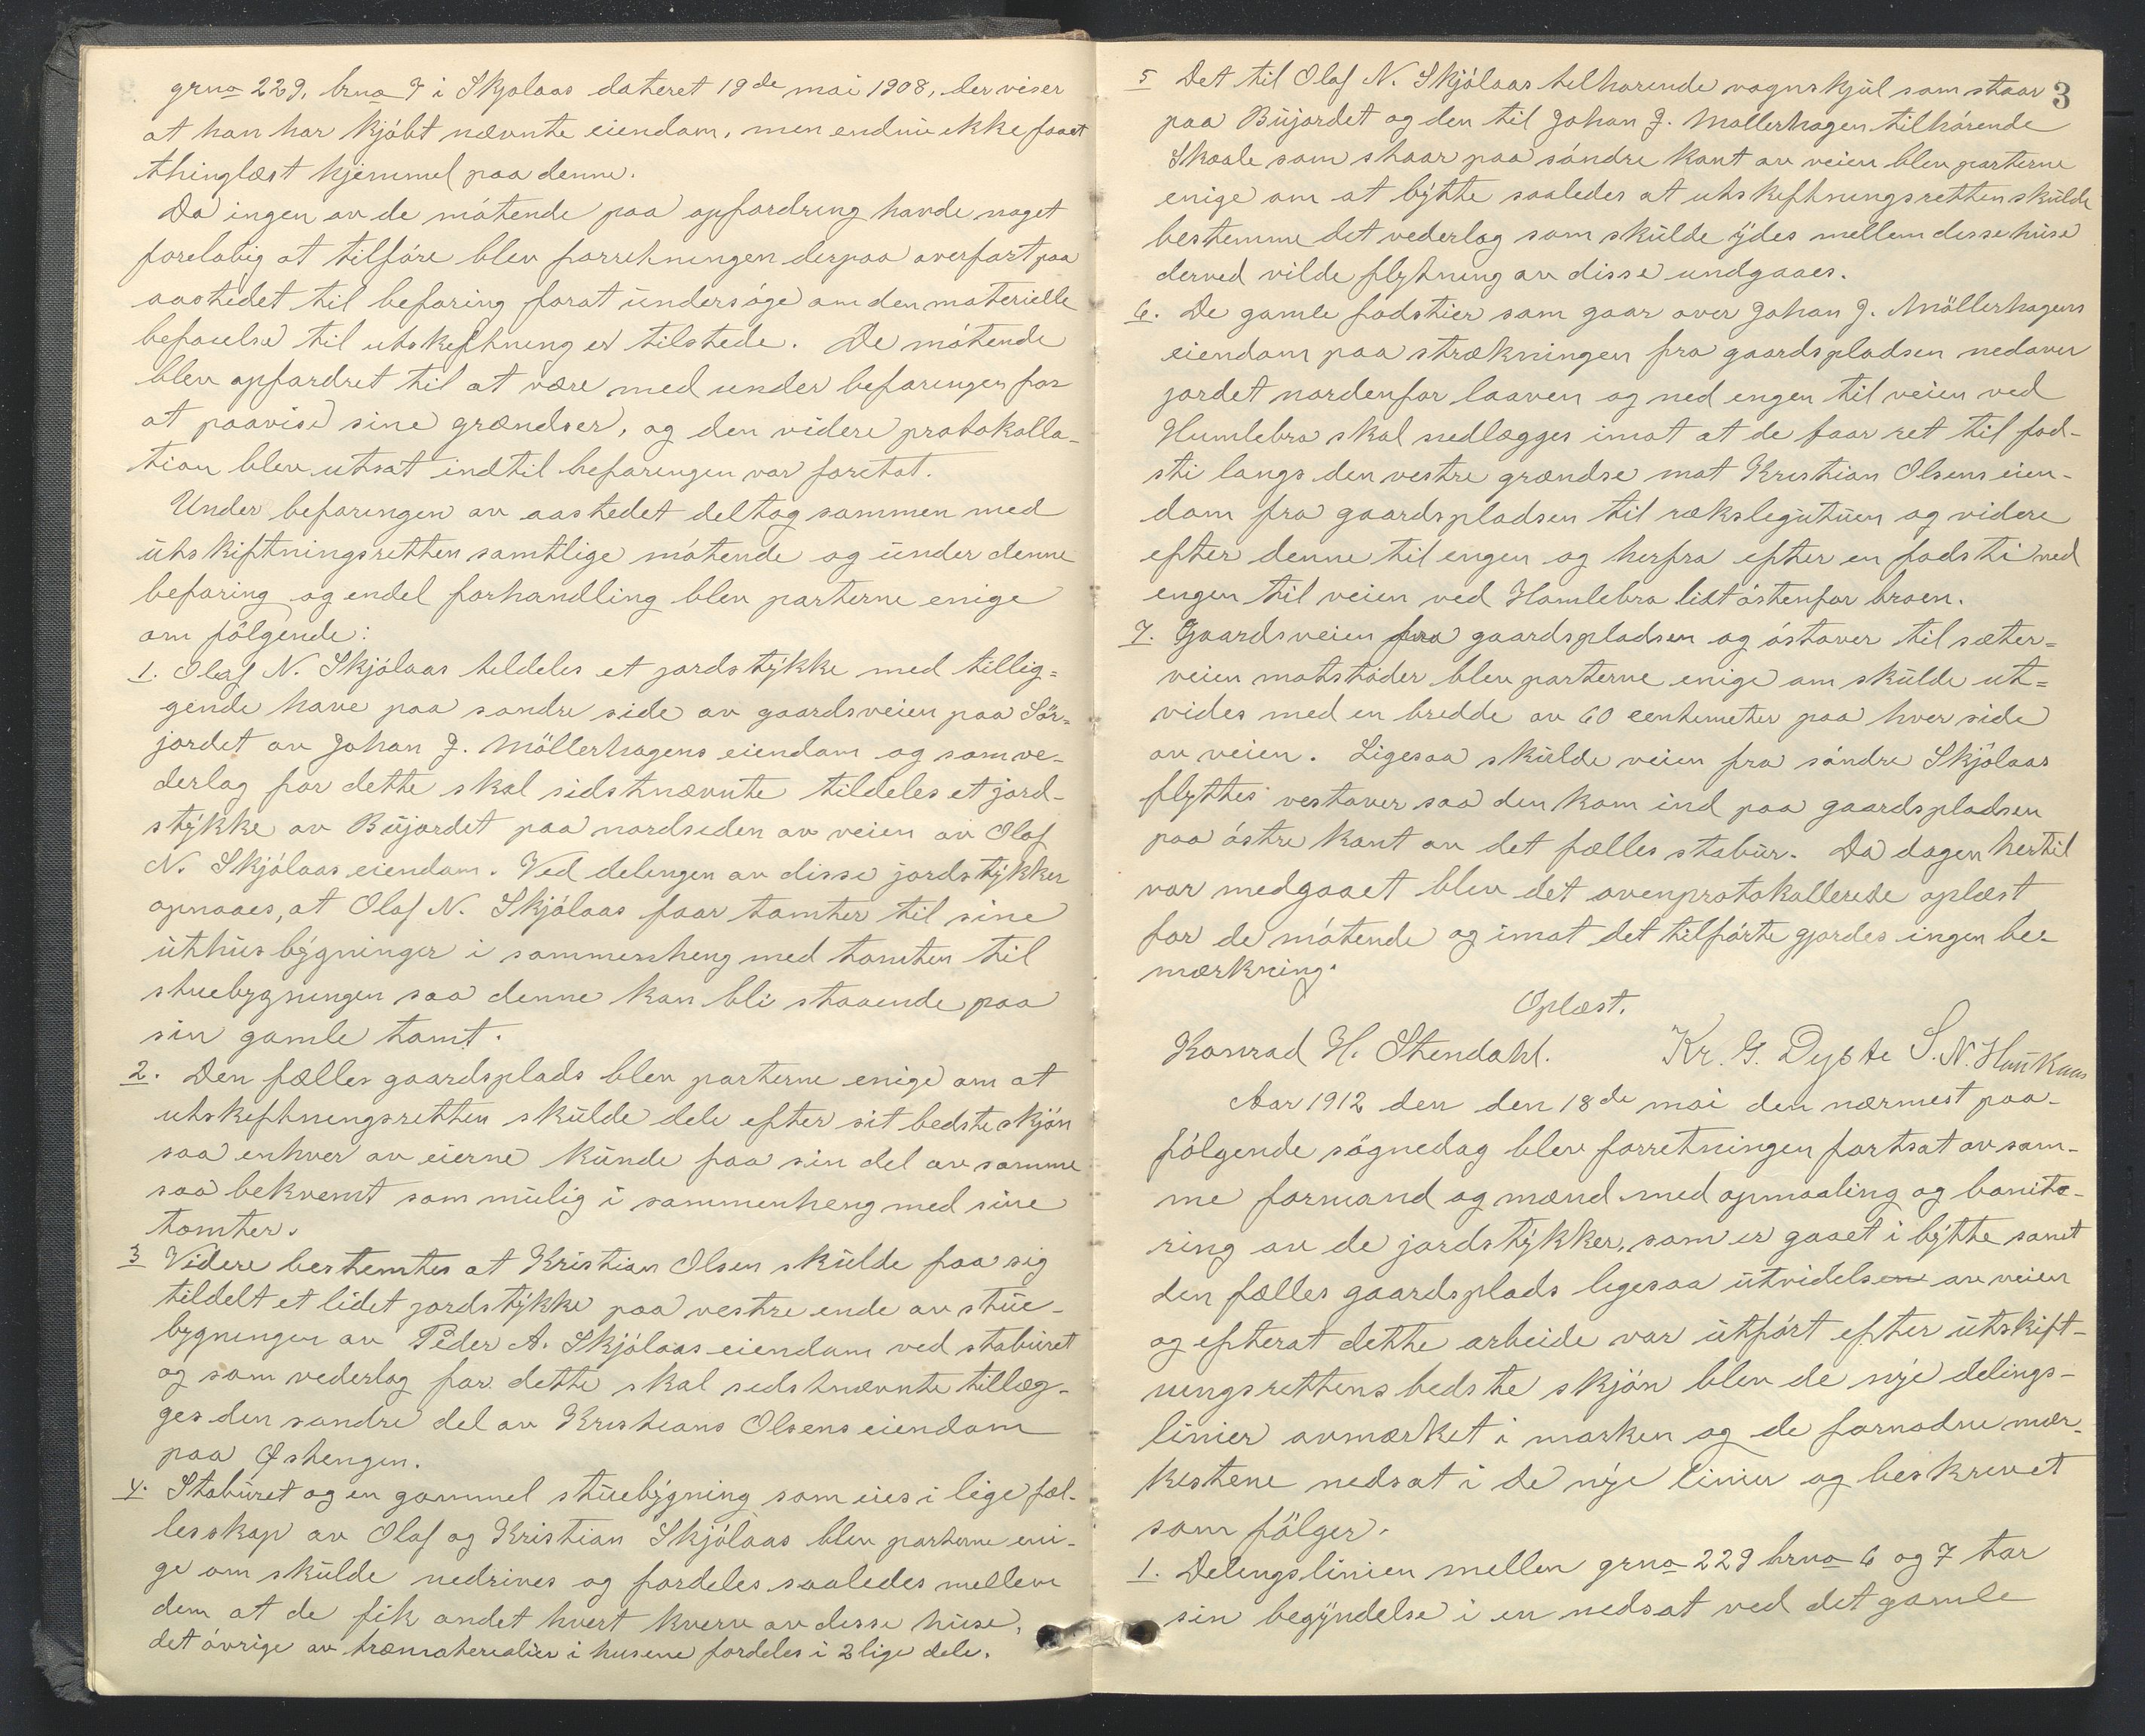 grno 229, brno 7 i Skjølaas dateret 19de mai 1908, der viser
at han har kjöbt nævnte eiendom, men endnu ikke faaet
thinglæst hjemmel paa denne.
Da ingen av de mötende paa opfordring havde noget
foreløbig at tilföre blev forretningen derpaa overført paa
aastedet til befaring forat undersöge om den materielle
beføielse til utskiftning er tilstede. De mötende
blev opfordret til at være med under befaringen for
at paavise sine grændser, og den videre protokolla-
tion blev utsat indtil befaringen var foretat.
Under befaringen av aastedet deltog sammen med
utskiftningsretten samtlige mötende og under denne
befaring og endel forhandling blev parterne enige
om fölgende:
1. Olaf N. Skjölaas tildeles et jordstykke med tillig=
gende have paa søndre side av gaardsveien paa Sör-
jordet av Johan J. Möllerhagens eiendom og som ve-
derlag for dette skal sidstnævnte tildeles et jord-
stykke av Bujordet paa nordsiden av veien av Olaf
N. Skjölaas eiendom. Ved delingen av disse jordstykker
opnaaes, at Olaf N. Skjölaas faar tomter til sine
uthusbygninger i sammenheng med tomten til
stuebygningen saa denne kan bli staaende paa
sin gamle tomt.
2. Den fælles gaardsplads blev parterne enige om at
utskiftningsretten skulde dele efter sit bedste skjön
saa enhver av eierne kunde faa sin del av samme
saa bekvemt som mulig i sammenheng med sine
tomter.
3 Videre bestemtes at Kristian Olsen skulde faa sig
tildelt et lidet jordstykke paa vestre ende av stue-
bygningen av Peder A. Skjölaas eiendom ved staburet
og som vederlag for dette skal sidstnævnte tillæg-
ges den søndre del av Kristians Olsens eiendom
paa Østengen.
4. Staburet og en gammel stuebygning som eies i lige fæl-
lesskap av Olaf og Kristian Skjölaas blev parterne eni-
ge om skulde nedrives og fordeles saaledes mellem
dem at de fik andet hvert kverv av disse huse,
det övrige av træmaterialier i husene fordeles i 2 lige dele.
3
5 Det til Olaf N. Skjölaas tilhørende vognskjul som staar
paa Bujordet og den til Johan J. Møllerhagen tilhörende
Skaale som staar paa söndre kant av veien blev parterne
enige om at bytte saaledes at utskiftningsretten skulde
bestemme det vederlag som skulde ydes mellem disse huse
derved vilde flytning av disse undgaaes.
6. De gamle fodstier som gaar over Johan J. Möllerhagens
eiendom paa strækningen fra gaardspladsen nedover
jordet nordenfor laaven og ned engen til veien ved
Humlebro skal nedlægges imot at de faar ret til fod-
sti langs den vestre grændse mot Kristian Olsens eien-
dom fra gaardspladsen til rækslegutuen og videre
efter denne til engen og herfra efter en fodsti ned
engen til veien ved Homlebro litt östenfor broen.
7. Gaardsveien fra gaardspladsen og östover til sæter=
veien motstöder blev parterne enige om skulde ut=
vides med en bredde av 60 centimeter paa hver side
av veien. Ligesaa skulde veien fra söndre Skjölaas
flyttes vestover saa den kom ind paa gaardspladsen
paa östre kant av det fælles stabur. Da dagen hertil
var medgaaet blev det ovenprotokollerede oplæst
for de mötende og imot det tilförte gjordes ingen be-
mærkning.
Oplæst.
Konrad H. Stendahl. Kr. G. Dyste S. N. Haukaas
Aar 1912 den den 18de mai den nærmest paa-
fölgende sögnedag blev forretningen fortsat av sam-
me formand og mænd med opmaaling og bonite-
ring av de jordstykker, som er gaaet i bytte samt
den fælles gaardsplads ligesaa utvidelsen av veien
og efterat dette arbeide var utfört efter utskift-
ningsrettens bedste skjön blev de nye delings-
linier avmærket i marken og de fornødne mær-
kestene nedsat i de nye linier og beskrevet
som fölger.
1. Delingslinien mellem grno 229 brno 6 og 7 tar
sin begyndelse i en nedsat ved det gamle